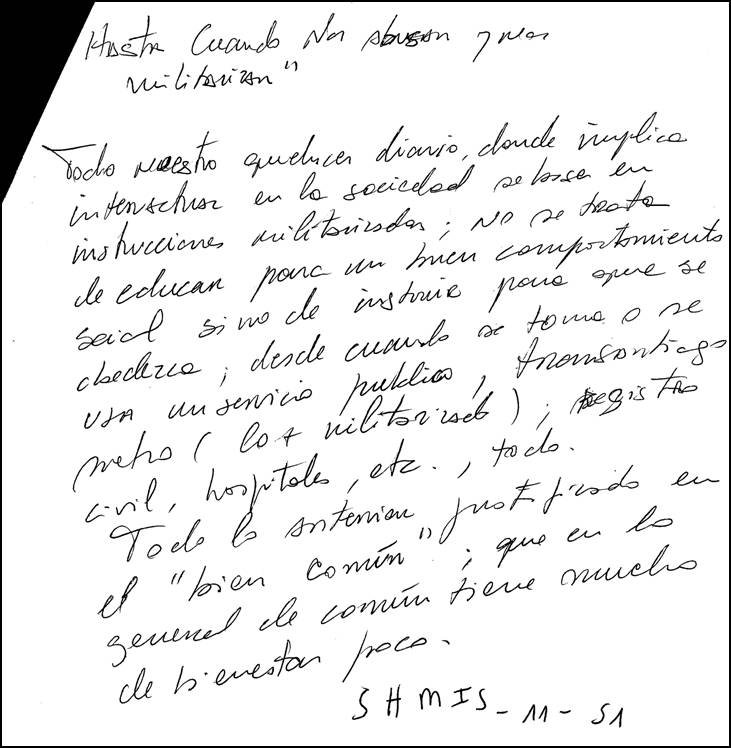 Hasta Cuando Nos abusan y nos
militarizan"
Todo nuestro quehacer diario, donde implica
interactuar en la sociedad se basa en
instrucciones militarizadas; No se trata
de educar para un buen comportamiento
social sino de instruir para que se
obedezca, desde cuando se toma o se
usa un servicio publico, transantiago
metro (lo + militarizado); registro
civil, hospitales, etc., todo.
Todo lo anterior justificado en
el "bien común"; que en lo
general de común tiene mucho
de bienestar poco.
SHMIS-11-51